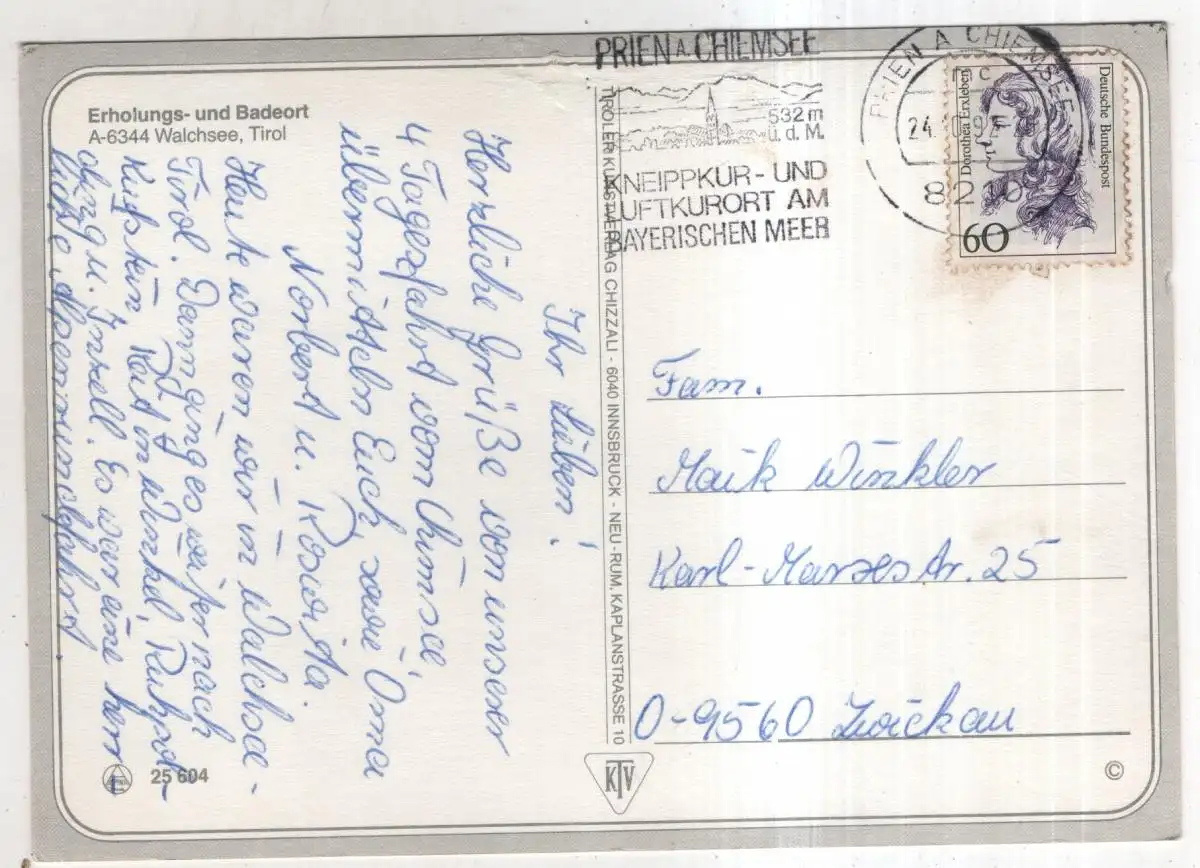 Erholungs- und Badeort
A-6344 Walchsee, Tirol
Ihr Lieben!
Herzliche Grüße von unserer
4 Tagesfahrt vom Chimsee,
übermitteln Euch, sowie Oma
Norbert u. Roswita.
Heute waren wir in Walchsee -
Tirol. Dann ging es weiter nach
Kufstein, Reit in Winkel, Ruhpol-
ding u. Inzell. Es war eine herr-
liche Alpenrundfahrt.
25 604
TIROLER KUNSTVERLAG CHIZZALI - 6040 INNSBRUCK - NEU-RUM, KAPLANSTRASSE 10
KTV
PRIEN A. CHIEMSEE
532 m
ü. d. M.
KNEIPPKUR- UND
LUFTKURORT AM
BAYERISCHEN MEER
PRIEN A CHIEMSEE
c
24.
8210
Dorothea Erxleben
Deutsche Bundespost
60
Fam.
Maik Winkler
Karl-Marxstr. 25
O-9560 Zwickau
©